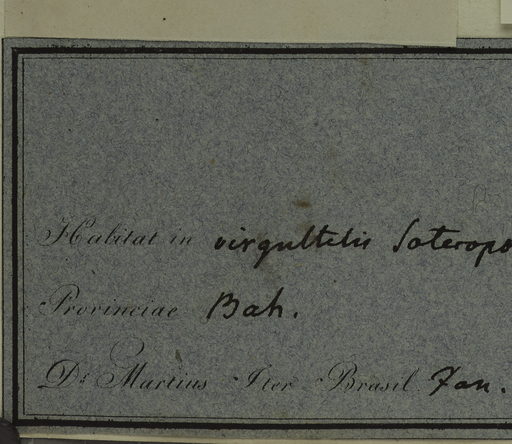 Habitat in virgultelis Soteropo
Provinciae Bah.
Dr. Martius Iter Brasil Jan.